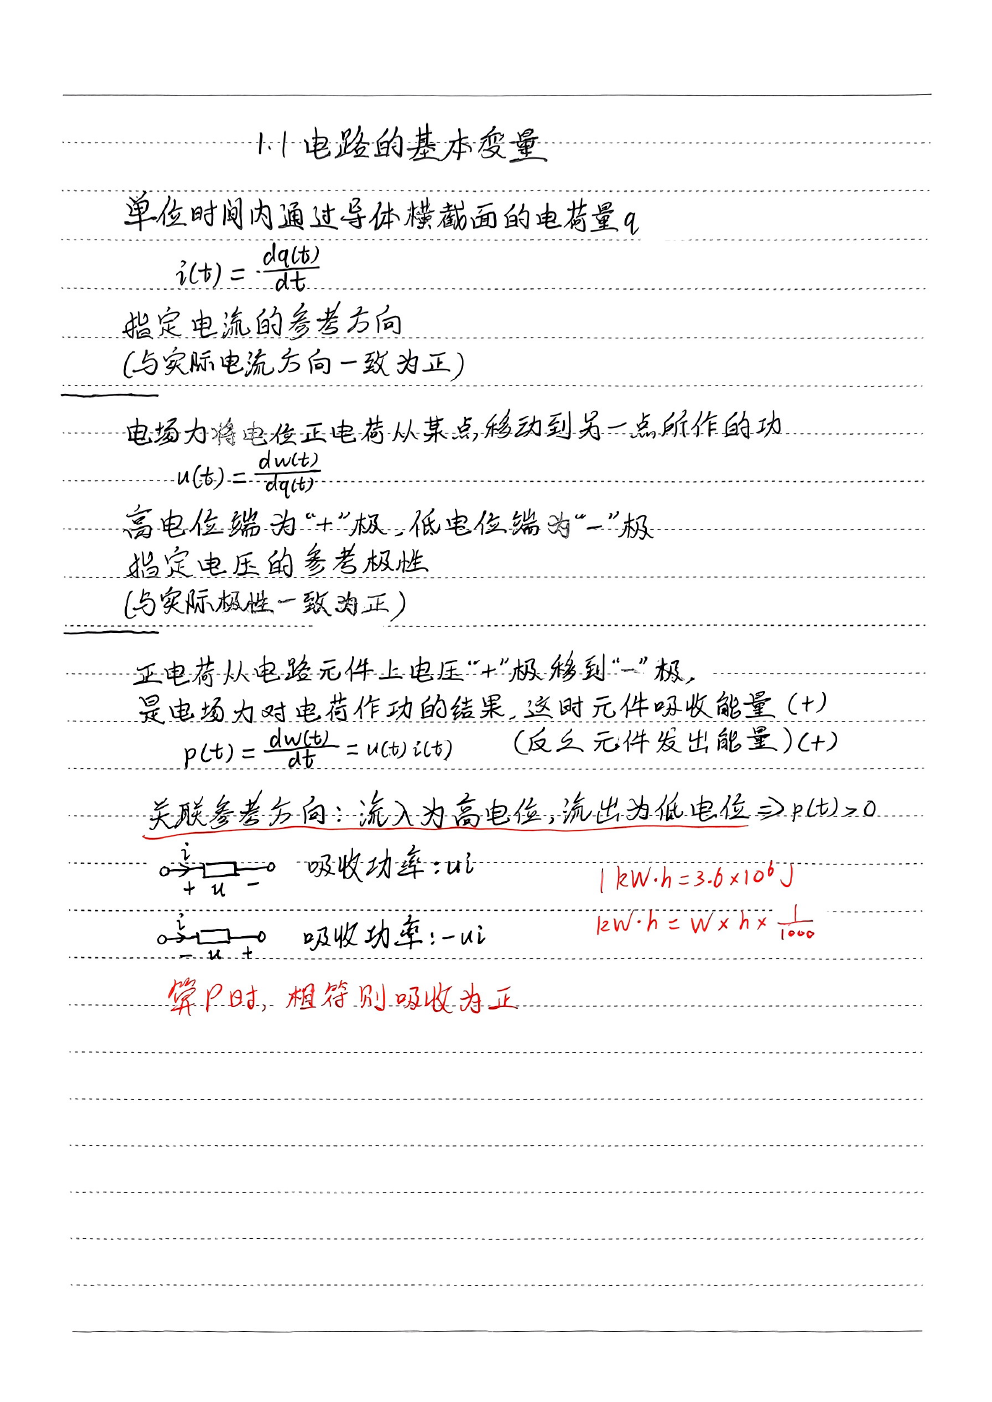 1.1 电路的基本变量
单位时间内通过导体横截面的电荷量q
i(t) = dq(t)/dt
指定电流的参考方向
(与实际电流方向一致为正)
电场力将电位正电荷从某点,移动到另一点所作的功
u(t) = dw(t)/dq(t)
高电位端为“+”极,低电位端为“-”极
指定电压的参考极性
(与实际极性一致为正)
正电荷从电路元件上电压“+”极移到“-”极,
是电场力对电荷作功的结果,这时元件吸收能量 (+)
p(t) = dw(t)/dt = u(t) i(t) (反之元件发出能量)(+)
关联参考方向: 流入为高电位,流出为低电位 ⇒ p(t) > 0
i
+ u - 吸收功率: ui
1 kW·h = 3.6×10⁶ J
i
- u + 吸收功率: -ui
kW·h = W × h × 1/1000
算P时, 相符则吸收为正